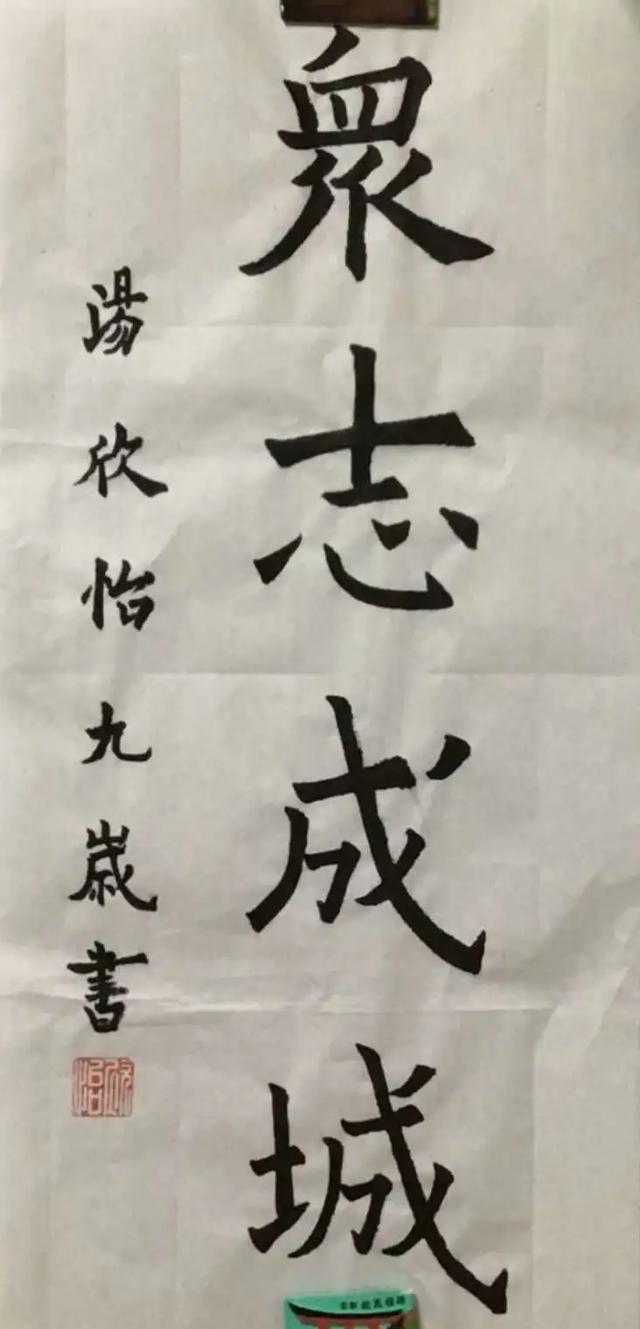 眾志成城
湯欣怡九歲書
欣怡